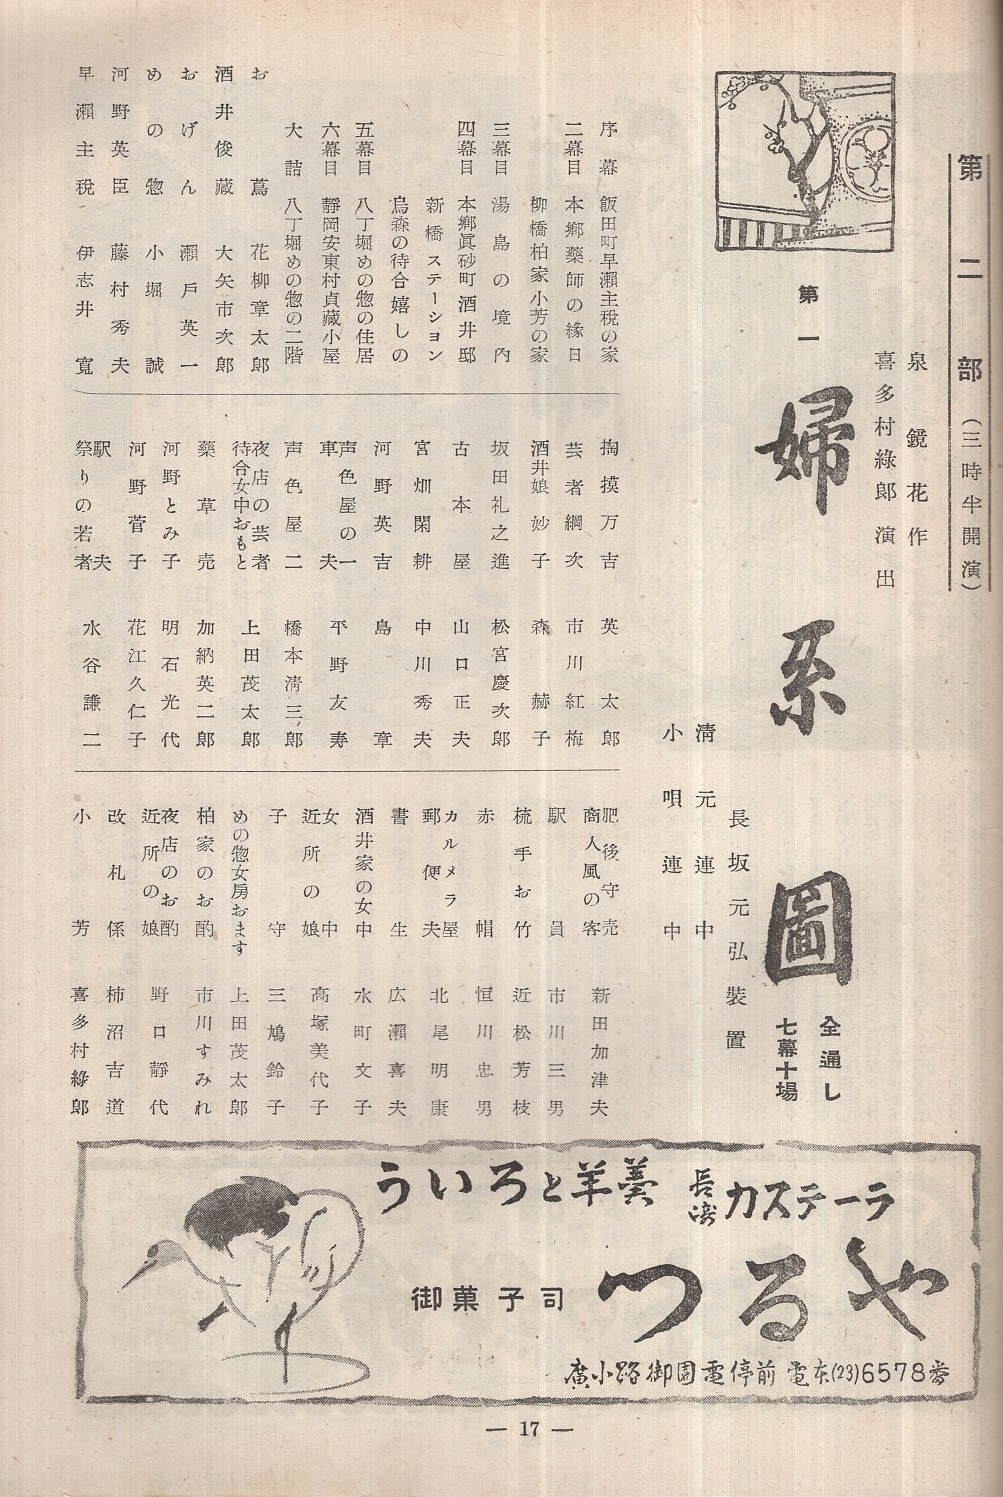 第二部（三時半開演）
泉鏡花作
喜多村綠郎演出
第一
婦系圖
全通し
七幕十場
長坂元弘裝置
淸元連中
小唄連中
序幕 飯田町早瀨主稅の家
二幕目 本鄕藥師の緣日
柳橋柏家小芳の家
三幕目 湯島の境內
四幕目 本鄕眞砂町酒井邸
新橋ステーション
烏森の待合嬉しの
五幕目 八丁堀めの惣の住居
六幕目 靜岡安東村貞藏小屋
大詰 八丁堀めの惣の二階
お蔦 花柳章太郎
酒井俊藏 大矢市次郎
おげん 瀨戶英一
めの惣 小堀誠
河野英臣 藤村秀夫
早瀨主稅 伊志井寬
掏摸万吉 英太郎
芸者綱次 市川紅梅
酒井娘妙子 森赫子
坂田礼之進 松宮慶次郎
古本屋 山口正夫
宮畑閑耕 中川秀夫
河野英吉 島章
声色屋の一
車夫 平野友寿
声色屋二 橋本淸三郎
夜店の芸者
待合女中おもと 上田茂太郎
藥草売 加納英二郎
河野とみ子 明石光代
河野菅子 花江久仁子
駅夫
祭りの若者 水谷謙二
肥後守売
商人風の客 新田加津夫
駅員 市川三男
梳手お竹 近松芳枝
赤帽 恒川忠男
カルメラ屋
郵便夫 北尾明康
書生 広瀨喜夫
酒井家の女中 水町文子
女中
近所の娘 高塚美代子
子守 三鳩鈴子
めの惣女房おます 上田茂太郎
柏家のお酌 市川すみれ
夜店のお酌
近所の娘 野口靜代
改札係 柿沼吉道
小芳 喜多村綠郎
ういろと羊羹 長崎カステーラ
御菓子司 つるや
廣小路御園電停前 電本(23)6578番
— 17 —